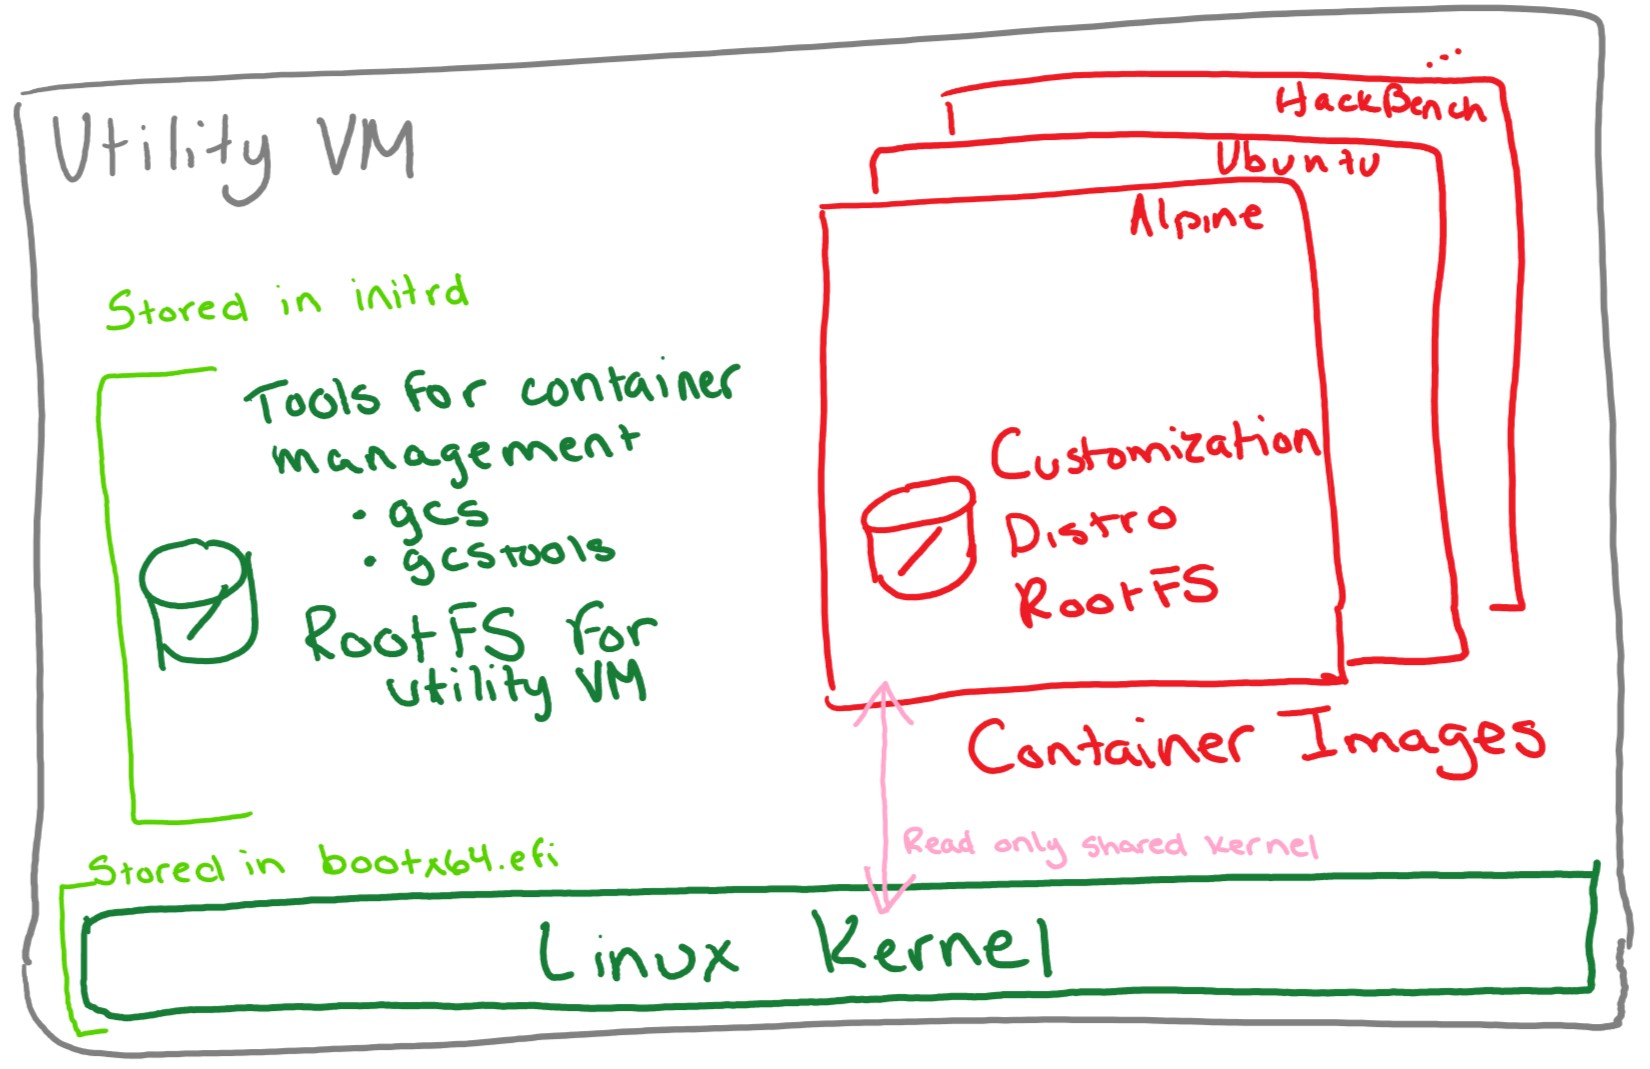 Utility VM
Stored in initrd
Tools for container
management
• gcs
• gcstools
RootFS for
utility VM
...
HackBench
Ubuntu
Alpine
Customization
Distro
RootFS
Container Images
Read only shared kernel
Stored in bootx64.efi
Linux Kernel